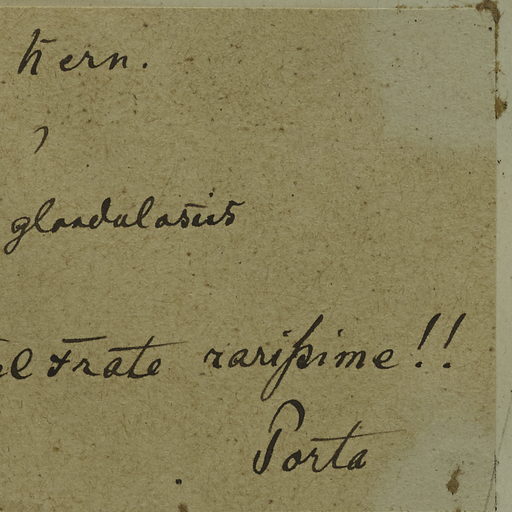 Kern.
glandulosus
Frate rarißime!!
Porta